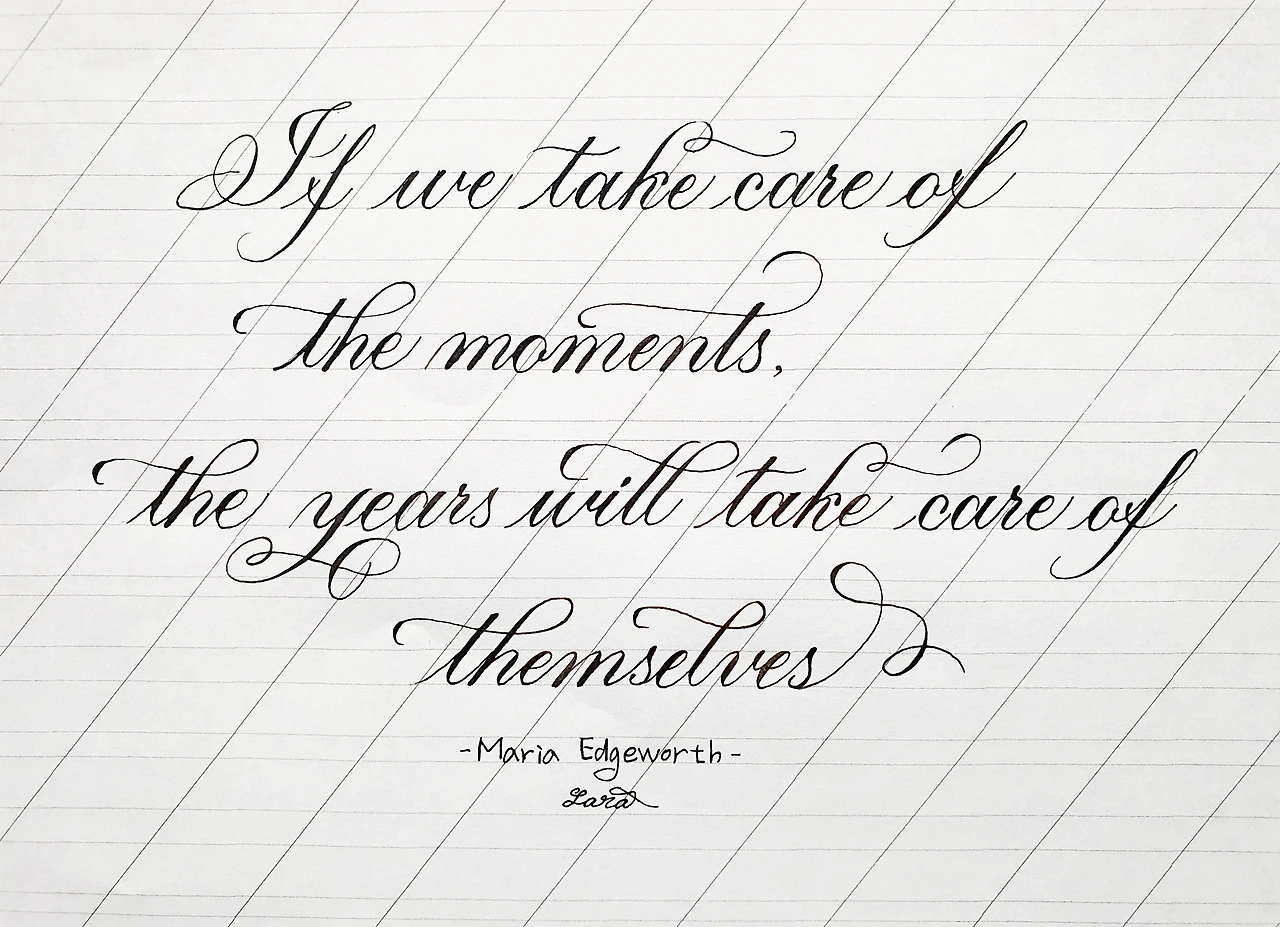 If we take care of
the moments,
the years will take care of
themselves
-Maria Edgeworth-
Lara